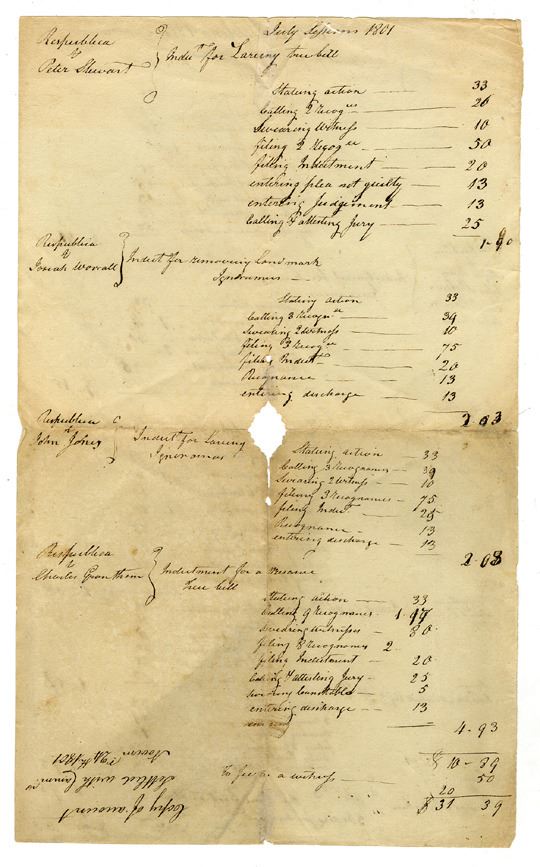 July Sessions 1801
Respublica
vs
Peter Stewart
Indt for Larceny true bill
Stating action 33
Calling 2 Recogces 26
Swearing Witness 10
filing 2 Recogces 50
filing Indictment 20
entering plea not guilty 13
entering Judgement 13
Calling & attesting Jury 25
1-90
Respublica
vs
Josiah Worrall
Indict for removing Landmark
Ignoramus
Stating action 33
Calling 3 Recognce 39
Swearing 2 Witness 10
filing 3 Recogce 75
filing Indict 20
Recognance 13
entering discharge 13
2.03
Respublica
vs
John Jones
Indict for Larceny
Ignoramus
Stating action 33
Calling 3 Recognances 39
Swearing 2 Witness 10
filing 3 Recognances 75
filing Indict 20
Recognance 13
entering discharge 13
2.03
Respublica
vs
Charles Grantham
Indictment for a
True bill
Stating action 33
Calling 9 Recognances 1.17
Swearing witnesses 80
filing 8 Recognances 2
filing Indictment 20
Calling & attesting Jury 25
Swearing Constable 5
entering discharge 13
4-93
$ 10-89
To fee as a witness 50
20
$ 31 39
Copy of amount
Settled with
24th 1801